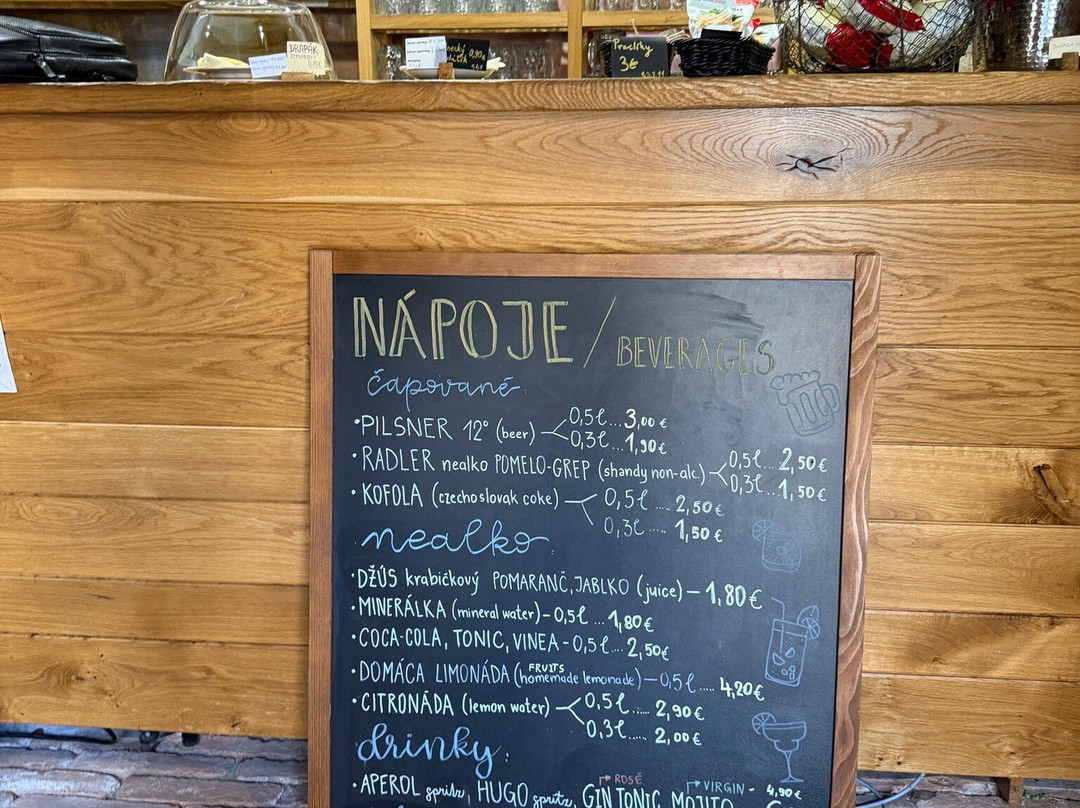 DRAPÁK
Travličky
3€
NÁPOJE / BEVERAGES
čapované:
•PILSNER 12° (beer) 0,5ℓ...3,00 €
0,3ℓ...1,90€
•RADLER nealko POMELO-GREP (shandy non-alc.) 0,5ℓ... 2,50€
0,3ℓ...1,50€
•KOFOLA (czechoslovak coke) 0,5ℓ .... 2,50€
0,3ℓ .... 1,50€
nealko:
•DŽÚS krabičkový POMARANČ, JABLKO (juice) – 1,80€
•MINERÁLKA (mineral water) – 0,5ℓ ... 1,80€
•COCA-COLA, TONIC, VINEA – 0,5ℓ... 2,50€
•DOMÁCA LIMONÁDA (FRUITS homemade lemonade) – 0,5ℓ..... 4,20€
•CITRONÁDA (lemon water) 0,5ℓ..... 2,90€
0,3ℓ..... 2,00€
drinky:
ROSÉ VIRGIN - 4,90€
•APEROL spritz, HUGO spritz, GIN TONIC, MOJITO